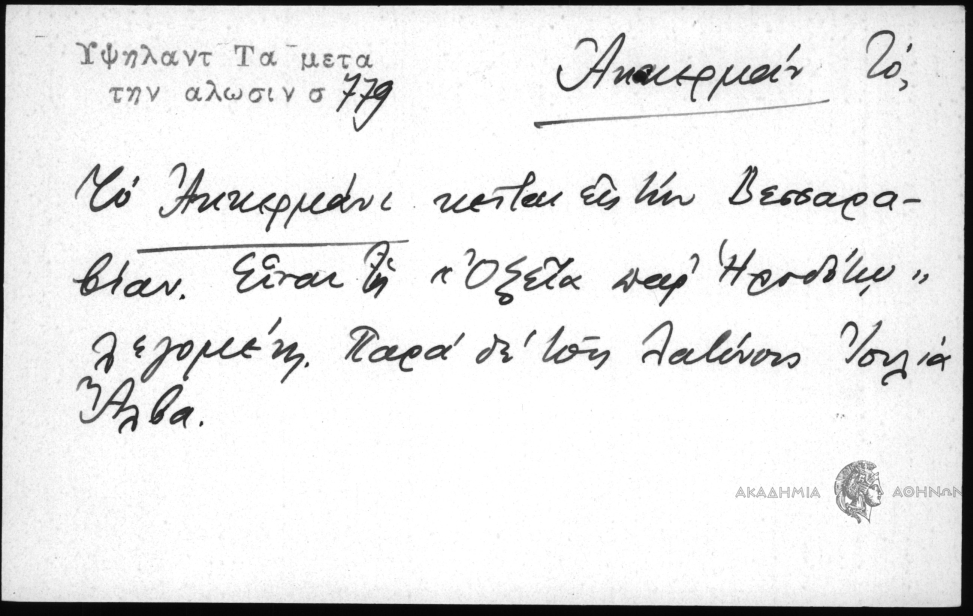 Υψηλαντ Τα μετα
την αλωσιν σ 779
Ἀκκερμάν Τό,
Τό Ἀκκερμάνι κεῖται εἰς τήν Βεσσαρα-
βίαν. Εἶναι ἡ "Ὀξεῖα παρ' Ἡροδότῳ"
λεγομένη. Παρά δέ τοῖς Λατίνοις Ἰουλία
Ἄλβα.
ΑΚΑΔΗΜΙΑ ΑΘΗΝΩΝ